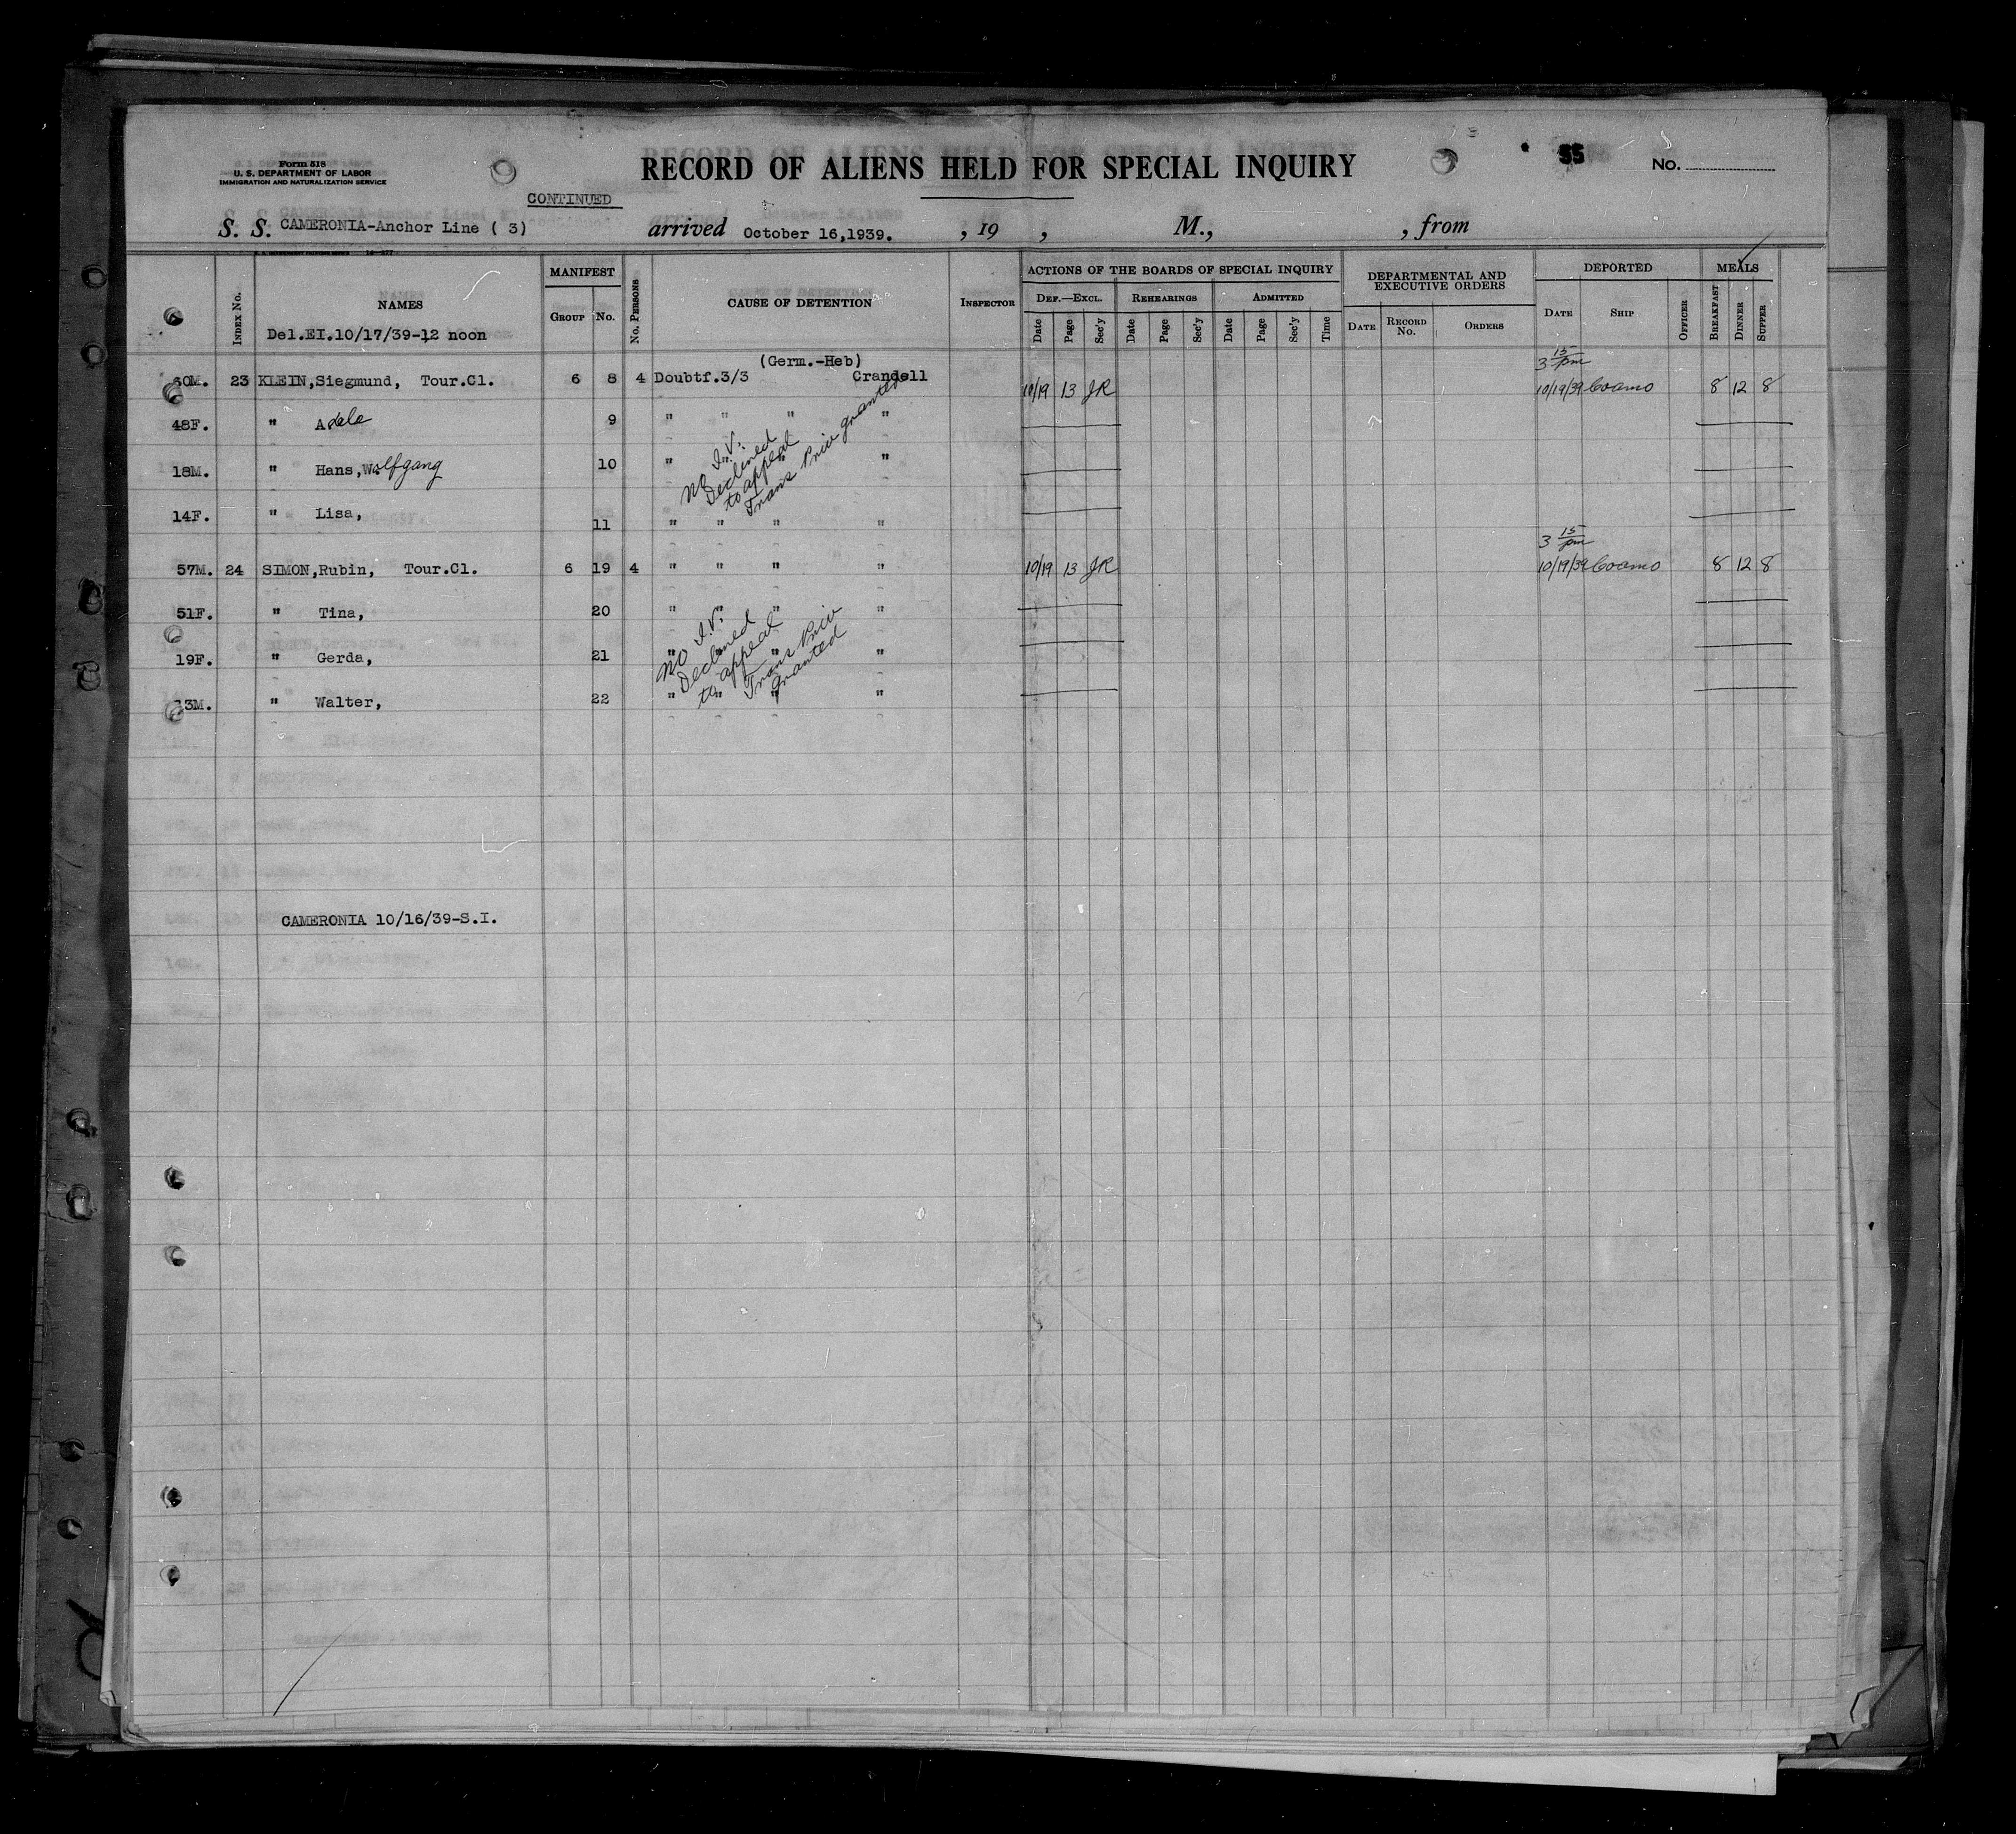 Form 518
U. S. DEPARTMENT OF LABOR
IMMIGRATION AND NATURALIZATION SERVICE
RECORD OF ALIENS HELD FOR SPECIAL INQUIRY
55
No.
CONTINUED
S. S. CAMERONIA-Anchor Line ( 3) arrived October 16,1939. , 19 , M., , from
Index No. NAMES MANIFEST Group No. No. Persons CAUSE OF DETENTION Inspector ACTIONS OF THE BOARDS OF SPECIAL INQUIRY Def.—Excl. Date Page Sec'y Rehearings Date Page Sec'y Admitted Date Page Sec'y Time DEPARTMENTAL AND EXECUTIVE ORDERS Date Record No. Orders DEPORTED Date Ship Officer MEALS Breakfast Dinner Supper
Del.EI.10/17/39-12 noon
(Germ.-Heb) 3 15/pm
23 KLEIN,Siegmund, Tour.Cl. 6 8 4 Doubtf.3/3 Crandell 10/19 13 JR 10/19/39 Coamo 8 12 8
48F. " Adele 9 " " " "
18M. " Hans,Wolfgang 10 " " " "
14F. " Lisa, 11 " " " "
No I.V.
Declined
to appeal
Trans Priv granted
3 15/pm
57M. 24 SIMON,Rubin, Tour.Cl. 6 19 4 " " " " 10/19 13 JR 10/19/39 Coamo 8 12 8
51F. " Tina, 20 " " " "
19F. " Gerda, 21 " " " "
3M. " Walter, 22 " " " "
No I.V.
Declined
to appeal
Trans Priv
granted
CAMERONIA 10/16/39-S.I.